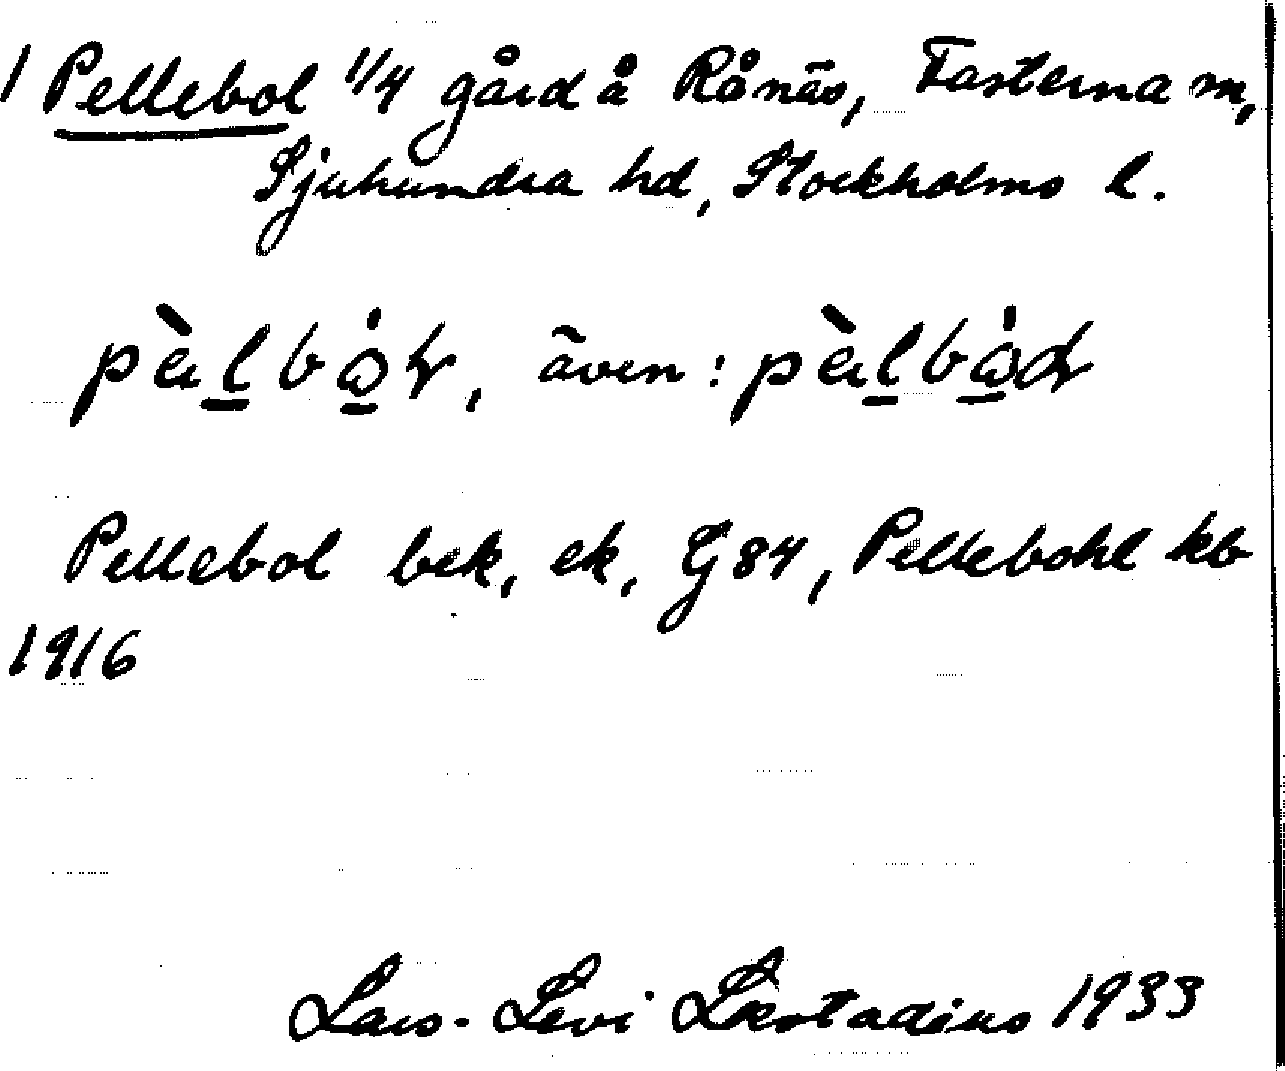 1 Pellebol 1/4 gård å Rånäs, Fasterna sn,
Sjuhundra hd, Stockholms l.
även:
Pellebol bek, ek, Gj 84, Pellebohl kb
1916
Lars-Levi Læstadius 1933